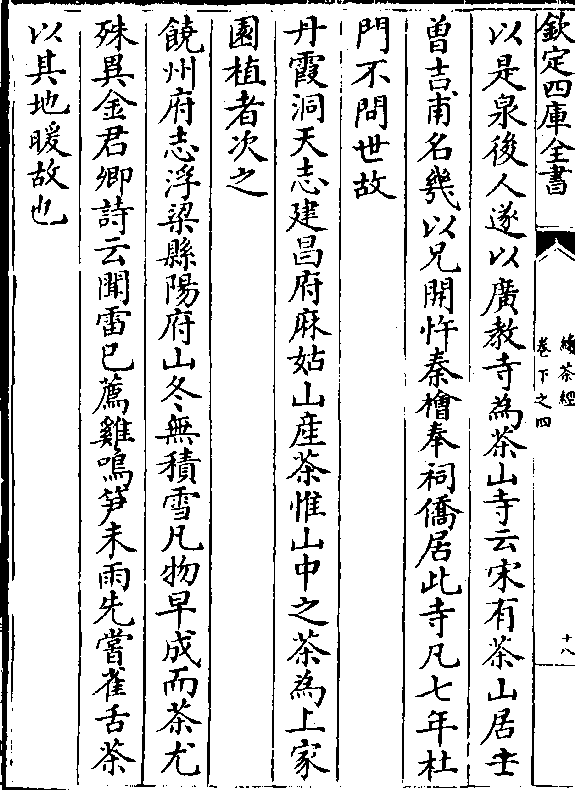 欽定四庫全書
續茶經
卷下之四
十八
以是泉後人遂以廣教寺為茶山寺云宋有茶山居士
曾吉甫名幾以兄開忤秦檜奉祠僑居此寺凡七年杜
門不問世故
丹霞洞天志建昌府麻姑山産茶惟山中之茶為上家
園植者次之
饒州府志浮梁縣陽府山冬無積雪凡物早成而茶尤
殊異金君卿詩云聞雷已薦雞鳴笋未雨先嘗雀舌茶
以其地暖故也